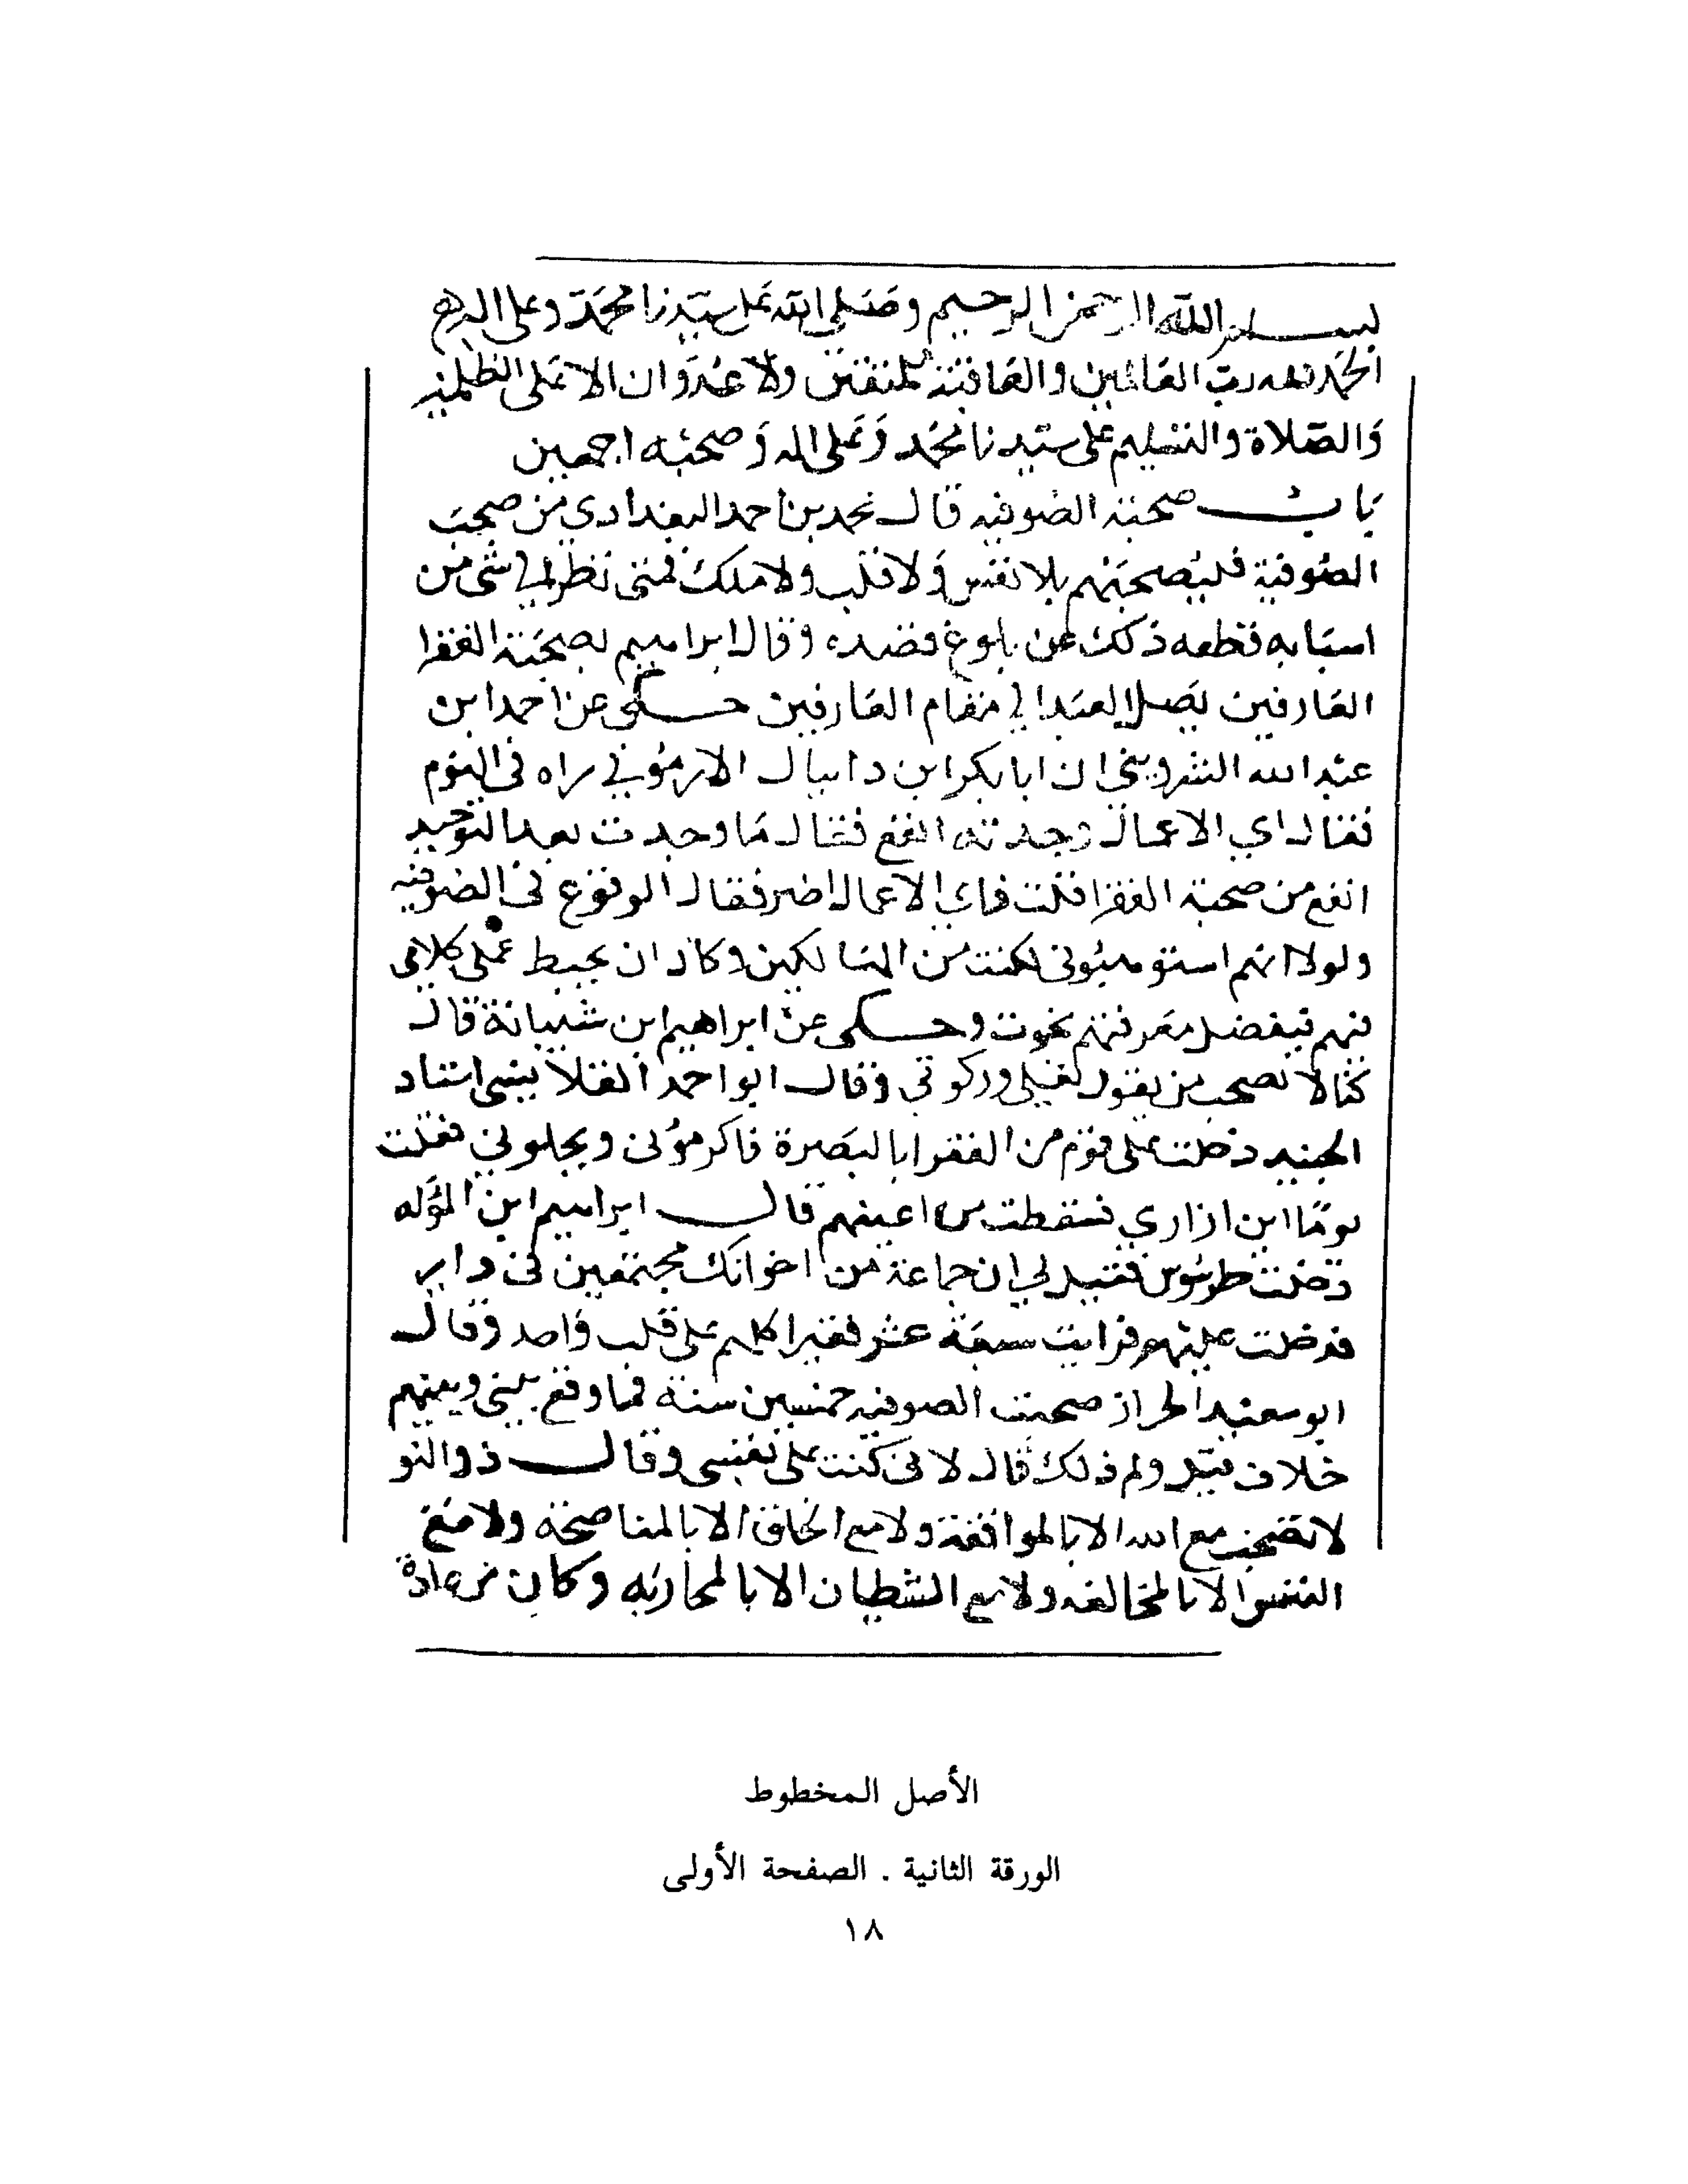 بسم الله الرحمن الرحيم وصلى الله على سيدنا محمد وعلى اله
الحمد لله رب العالمين والعاقبة للمتقين ولا عدوان الا على الظلمين
والصلاة والتسليم على سيدنا محمد وعلى اله وصحبه اجمعين
باب صحبة الصوفيه قال محمد بن احمد البغدادي من صحب
الصوفية فليصحبهم بلا نفس ولا قلب ولا ملك فمتى نظر الى شى من
اسبابه قطعه ذلك عن بلوغ قصده وقال ابراهيم بصحبة الفقرا
العارفين يصل العبد الي مقام العارفين حكى عن احمد ابن
عبد الله الشرويني ان ابا بكر ابن دانيال الارموي راه فى النوم
فقال اي الاعمال وجدته انفع فقال ما وجدت بعد التوحيد
انفع من صحبة الفقرا قلت فاي الاعمال اضر فقال الوقوع فى الصوفيه
ولولا انهم استوهبونى لكنت من الهالكين وكاد ان يحبط عملى كلامى
فيهم فبفضل معرفتهم نجوت وحكى عن ابراهيم ابن شيبانة قال
كنا لا نصحب من يقول نعلي وركوتي وقال ابو احمد القلانسى استاد
الجنيد دخلت على قوم من الفقرا بالبصرة فاكرمونى وبجلوني فقلت
يوما اين ازاري فسقطت من اعينهم قال ابراهيم ابن المولد
دخلت طرسوس فقيل لي ان جماعة من اخوانك مجتمعين فى دار
فدخلت عليهم فرايت سبعة عشر فقيرا كلهم على قلب واحد وقال
ابو سعيد الخراز صحبت الصوفيه خمسين سنة فما وقع بينى وبينهم
خلاف قيل ولم ذلك قال لانى كنت على نفسى وقال ذو النو
لا تصحب مع الله الا بالموافقة ولا مع الخلق الا بالمناصحة ولا مع
النفس الا بالمخالفه ولا مع الشيطان الا بالمحاربه وكان من عادة
الأصل المخطوط
الورقة الثانية . الصفحة الأولى
١٨